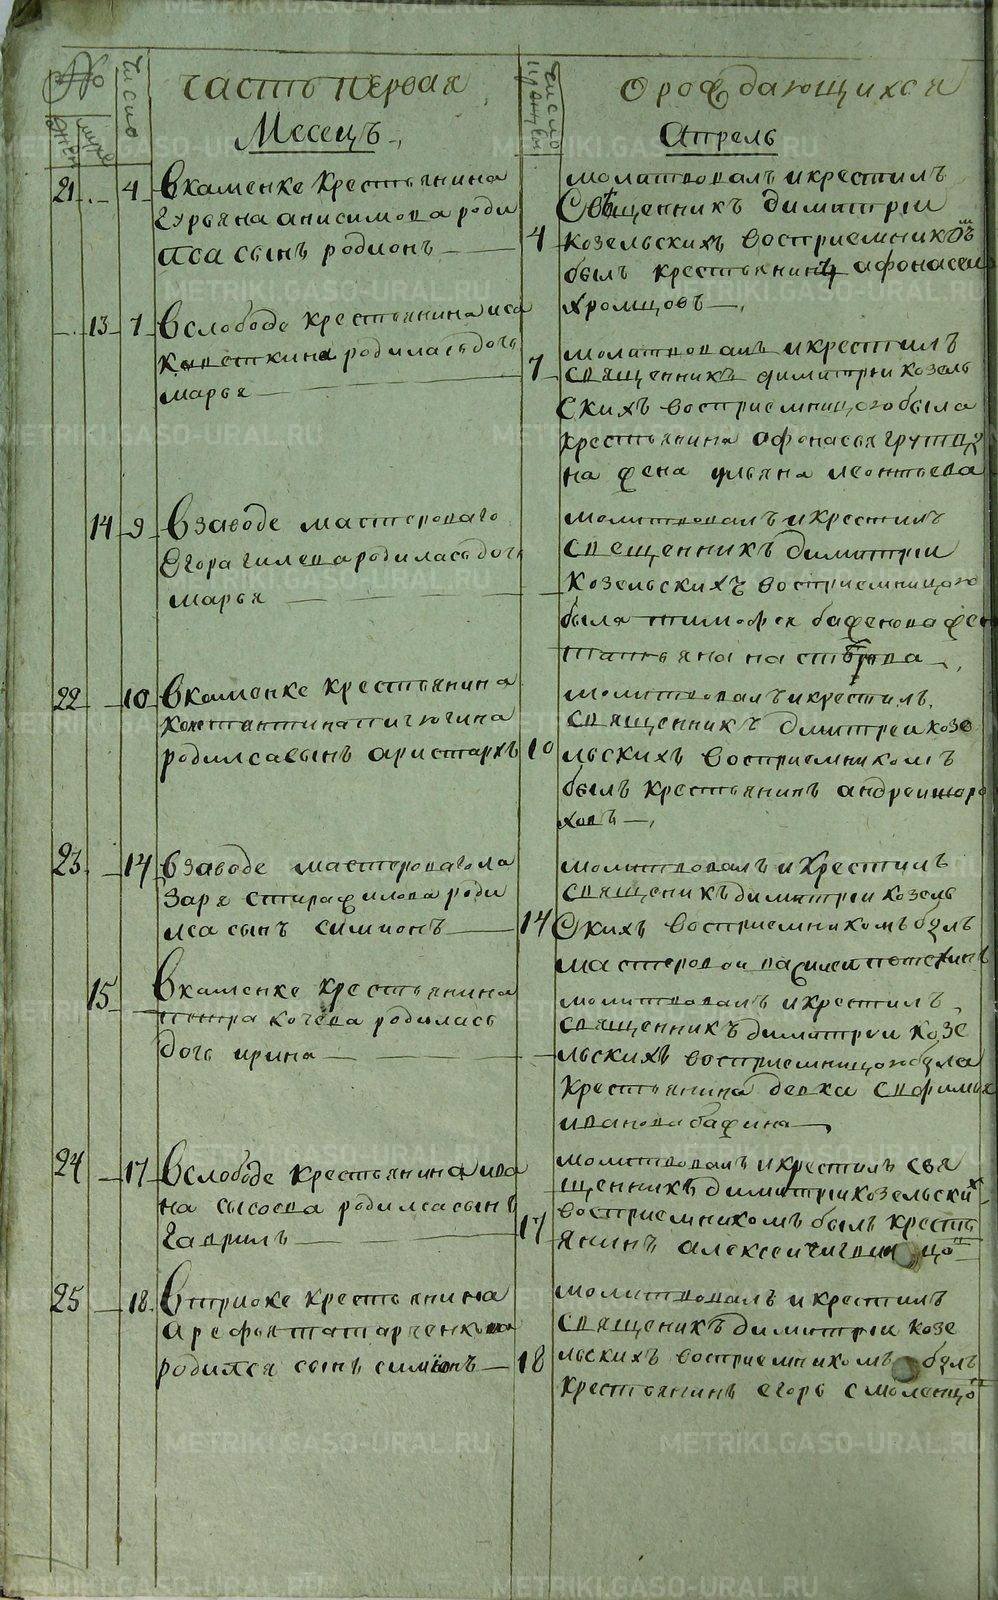 Часть первая
О рождающихся
№
Число
Число крещен
Месецъ
Апрель
муж женс
21 4 Вкаменке крестьянина
Гурьяна анисимова роди
лса сынъ родионъ
4
молитвовалъ икрестилъ
Свещенникъ димитрiи
козельскихъ восприемникомъ
былъ крестьянинъ афонасеи
хромцовъ
13 7 Вслободе крестьянина иса
родиласьдочь
марья
7
молитвовалъ икрестилъ
священникъ димитрiи козель
скихъ восприемницею была
крестьянина афонасья
на жена ульяна леонтьева
14 9 Взаводе мастероваго
Егора гилева родиласьдочь
марья
молитвовалъ икрестилъ
свещенникъ димитрiи
козельскихъ восприемницею
была тимофея баженова жена
татьяна
22 10 Вкаменке крестьянина
константина пичюгина
родилсасынъ аристархъ
10
молитвовалъ икрестилъ
священникъ димитреи козе
льскихъ восприемникомъ
былъ крестьянинъ андреи шоро
ховъ
23 14 Взаводе мастероваго ла
заря спирафилова роди
лса сынъ симионъ
14
молитвовалъ икрестилъ
священикъ димитреи козель
скихъ восприемникомъ былъ
мастеровои василеи
15 Вкаменке крестьянина
петра кочева родилась
дочь ирина
молитвовалъ икрестилъ
священникъ димитреи козе
льскихъ восприемницеюбыла
крестьянина девка
иванова бажина
24 17 Вслободе крестьянина ива
на сысоева родилсасынъ
Гаврилъ
17
молитвовалъ икрестилъ свя
щенникъ димитрiи козельских
восприемникомъ былъ кресть
янинъ алексеи
25 18 Втриоке крестьянина
арефья татарченкова
родился сынъ симiонъ
18
молитвовалъ икрестилъ
священикъ димитрiи козе
льскихъ восприемникомъ былъ
крестьянинъ егоръ смоленцо
METRIKI.GASO-URAL.RU